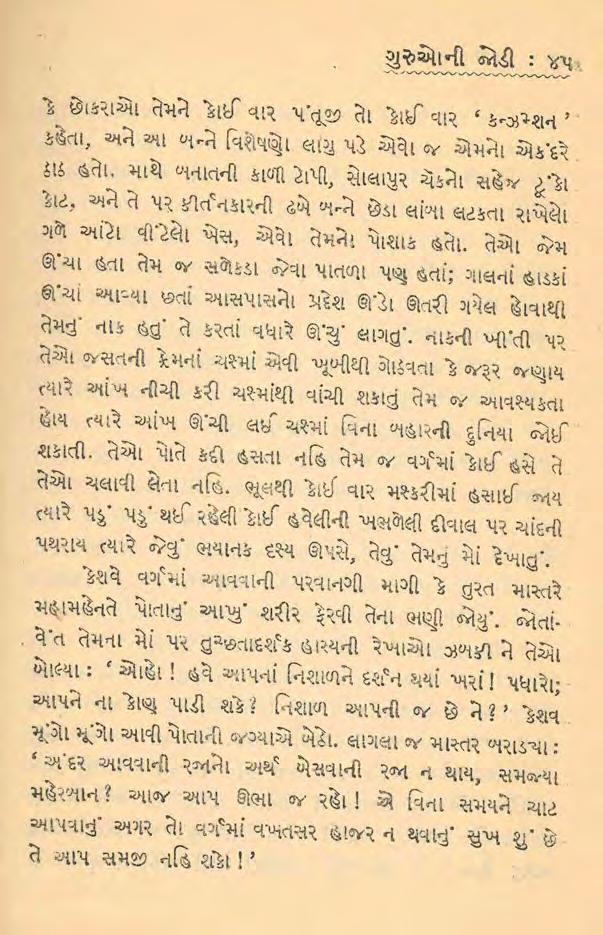 ગુરુઓની જોડી : ૪૫
કે છોકરાઓ તેમને કોઈ વાર પંતૂજી તો કોઈ વાર ‘ કન્ઝમ્શન ’
કહેતા, અને આ બન્ને વિશેષણો લાગુ પડે એવો જ એમનો એકંદરે
ઠાઠ હતો. માથે બનાતની કાળી ટોપી, સોલાપુર ચૅકનો સહેજ ટૂંકો
કોટ, અને તે પર કીર્તનકારની ઢબે બન્ને છેડા લાંબા લટકતા રાખેલો
ગળે આંટો વીંટેલો ખેસ, એવો તેમનો પોશાક હતો. તેઓ જેમ
ઊંચા હતા તેમ જ સળેકડા જેવા પાતળા પણ હતાં; ગાલનાં હાડકાં
ઊંચાં આવ્યા છતાં આસપાસનો પ્રદેશ ઊંડો ઊતરી ગયેલ હોવાથી
તેમનું નાક હતું તે કરતાં વધારે ઊંચું લાગતું. નાકની ખીંતી પર
તેઓ જસતની ફ્રેમનાં ચશ્માં એવી ખૂબીથી ગોઠવતા કે જરૂર જણાય
ત્યારે આંખ નીચી કરી ચશ્માંથી વાંચી શકાતું તેમ જ આવશ્યકતા
હોય ત્યારે આંખ ઊંચી લઈ ચશ્માં વિના બહારની દુનિયા જોઈ
શકાતી. તેઓ પોતે કદી હસતા નહિ તેમ જ વર્ગમાં કોઈ હસે તે
તેઓ ચલાવી લેતા નહિ. ભૂલથી કોઈ વાર મશ્કરીમાં હસાઈ જાય
ત્યારે પડું પડું થઈ રહેલી કોઈ હવેલીની ખખળેલી દીવાલ પર ચાંદની
પથરાય ત્યારે જેવું ભયાનક દૃશ્ય ઊપસે, તેવું તેમનું મોં દેખાતું.
કેશવે વર્ગમાં આવવાની પરવાનગી માગી કે તુરત માસ્તરે
મહામહેનતે પોતાનું આખું શરીર ફેરવી તેના ભણી જોયું. જોતાં-
વેંત તેમના મોં પર તુચ્છતાદર્શક હાસ્યની રેખાઓ ઝબકી ને તેઓ
બોલ્યા : ‘ ઓહો ! હવે આપનાં નિશાળને દર્શન થયાં ખરાં! પધારો;
આપને ના કોણ પાડી શકે? નિશાળ આપની જ છે ને?’ કેશવ
મૂંગો મૂંગો આવી પોતાની જગ્યાએ બેઠો. લાગલા જ માસ્તર બરાડ્યા :
‘ અંદર આવવાની રજાનો અર્થ બેસવાની રજા ન થાય, સમજ્યા
મહેરબાન? આજ આપ ઊભા જ રહો! એ વિના સમયને ચાટ
આપવાનું અગર તો વર્ગમાં વખતસર હાજર ન થવાનું સુખ શું છે
તે આપ સમજી નહિ શકો ! ’